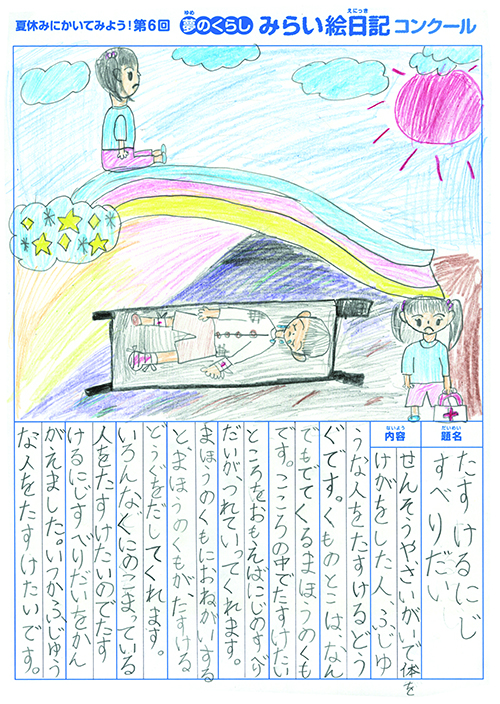 夏休みにかいてみよう!第6回 夢のくらし みらい絵日記コンクール
ゆめ
えにっき
だいめい
題名
たすけるにじ
すべりだい
ないよう
内容
せんそうやさいがいで体を
けがをした人、ふじゆ
うな人をたすけるどう
ぐです。くものとこは、なん
でもでてくるまほうのくも
です。こころの中でたすけたい
ところをおもえばにじのすべり
だいが、つれていってくれます。
まほうのくもにおねがいする
と、まほうのくもが、たすける
どうぐをだしてくれます。
いろんな、くにのこまっている
人をたすけたいのでたす
けるにじすべりだいをかん
がえました。いつか、ふじゅう
な人をたすけたいです。